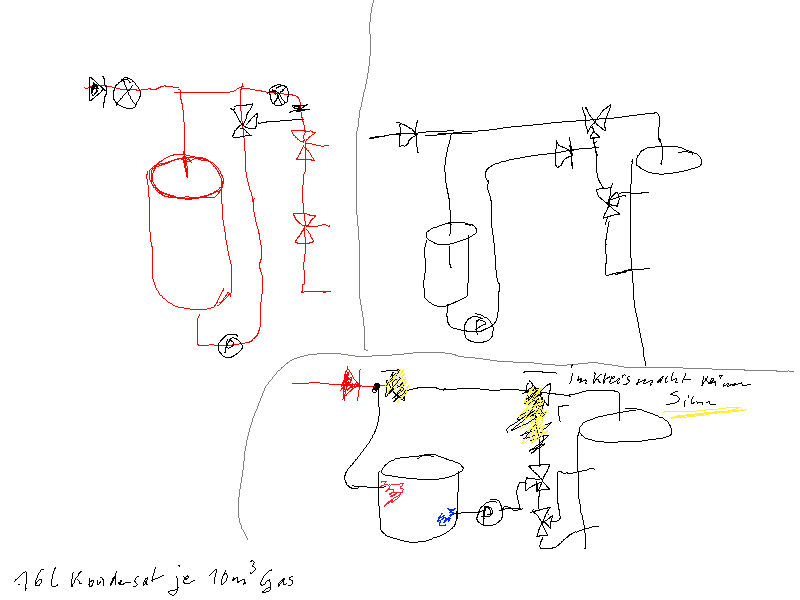 P
P
im Kreis macht keinen
Sinn
P
16 L Kondensat je 10m³ Gas